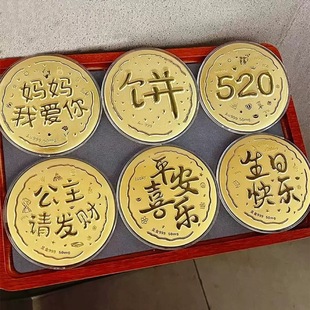 妈妈
我爱你
饼
520
公主
请发财
平安
喜乐
生日
快乐